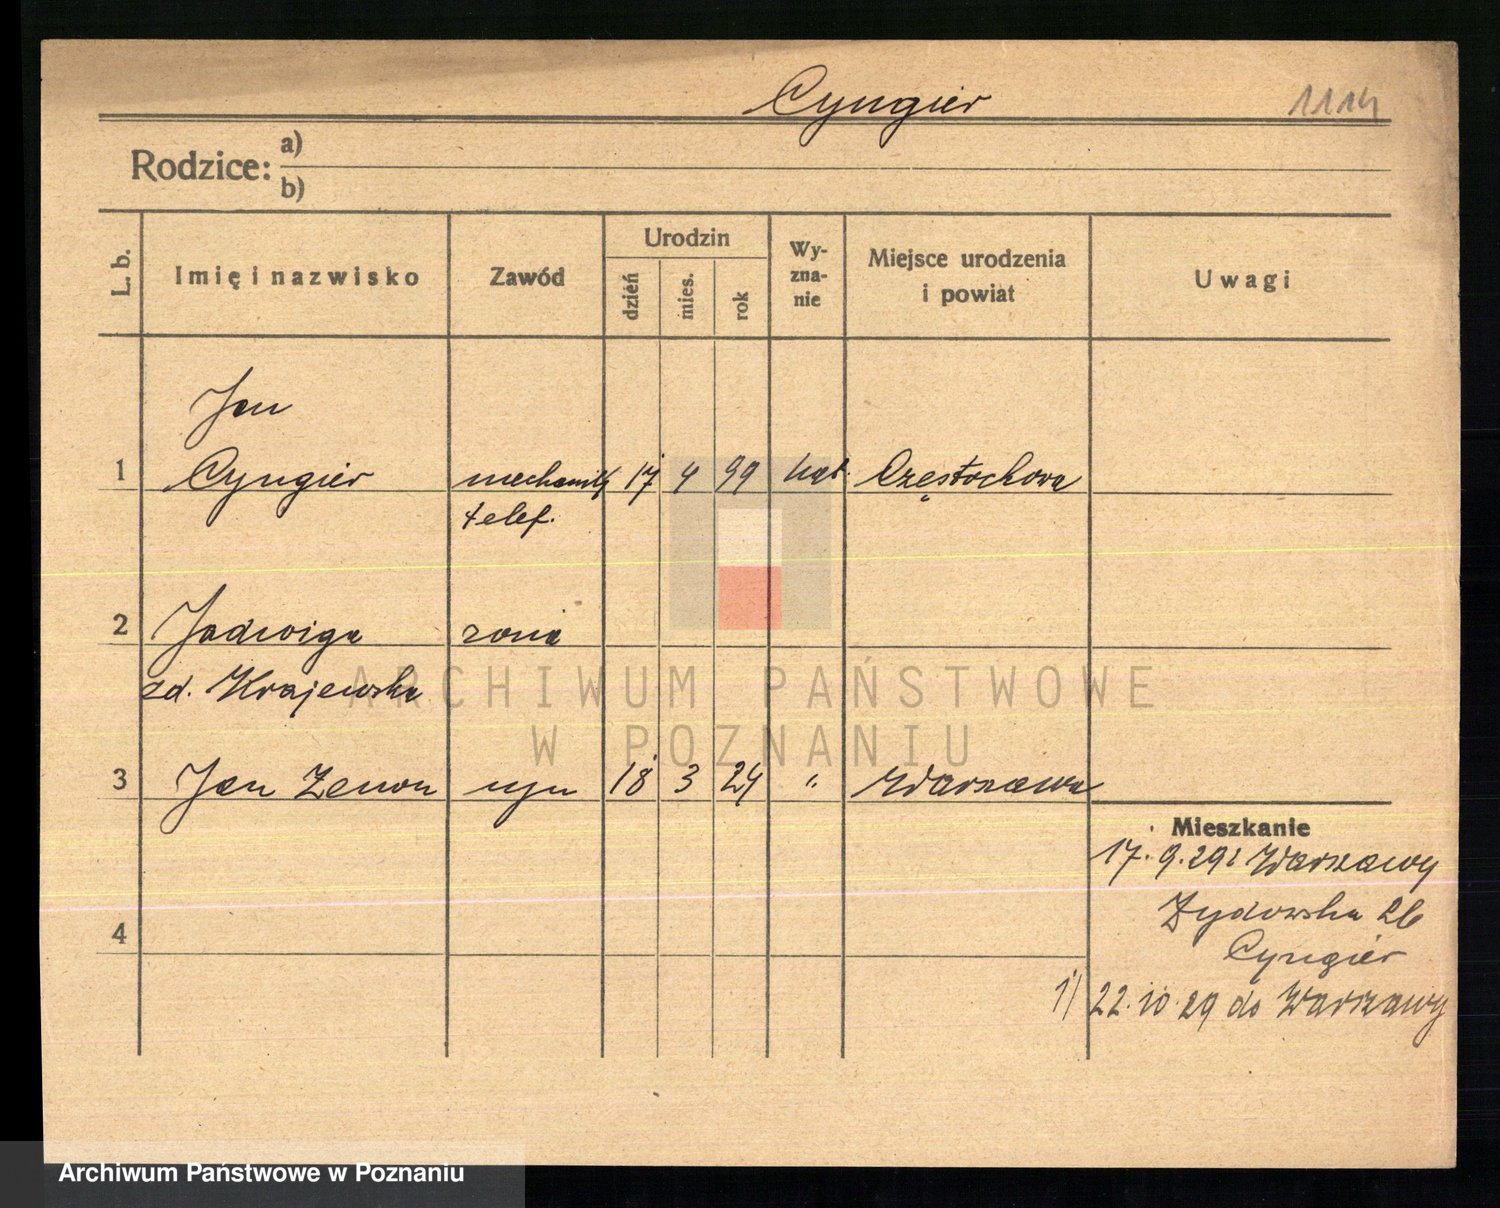 Cyngier 1114
Rodzice: a)
b)
L. b. Imię i nazwisko Zawód Urodzin dzień mies. rok Wy-zna-nie Miejsce urodzenia i powiat Uwagi
Jan
1 Cyngier mechanik 17 4 99 kat. Częstochowa
telef.
2 Jadwiga żona
zd. Krajewska
3 Jan Zenon syn 18 3 24 " Warszawa
Mieszkanie
17.9.29 z Warszawy
Żydowska 26
4
Cyngier
1) 22.10.29 do Warszawy
ARCHIWUM PAŃSTWOWE
W POZNANIU
Archiwum Państwowe w Poznaniu